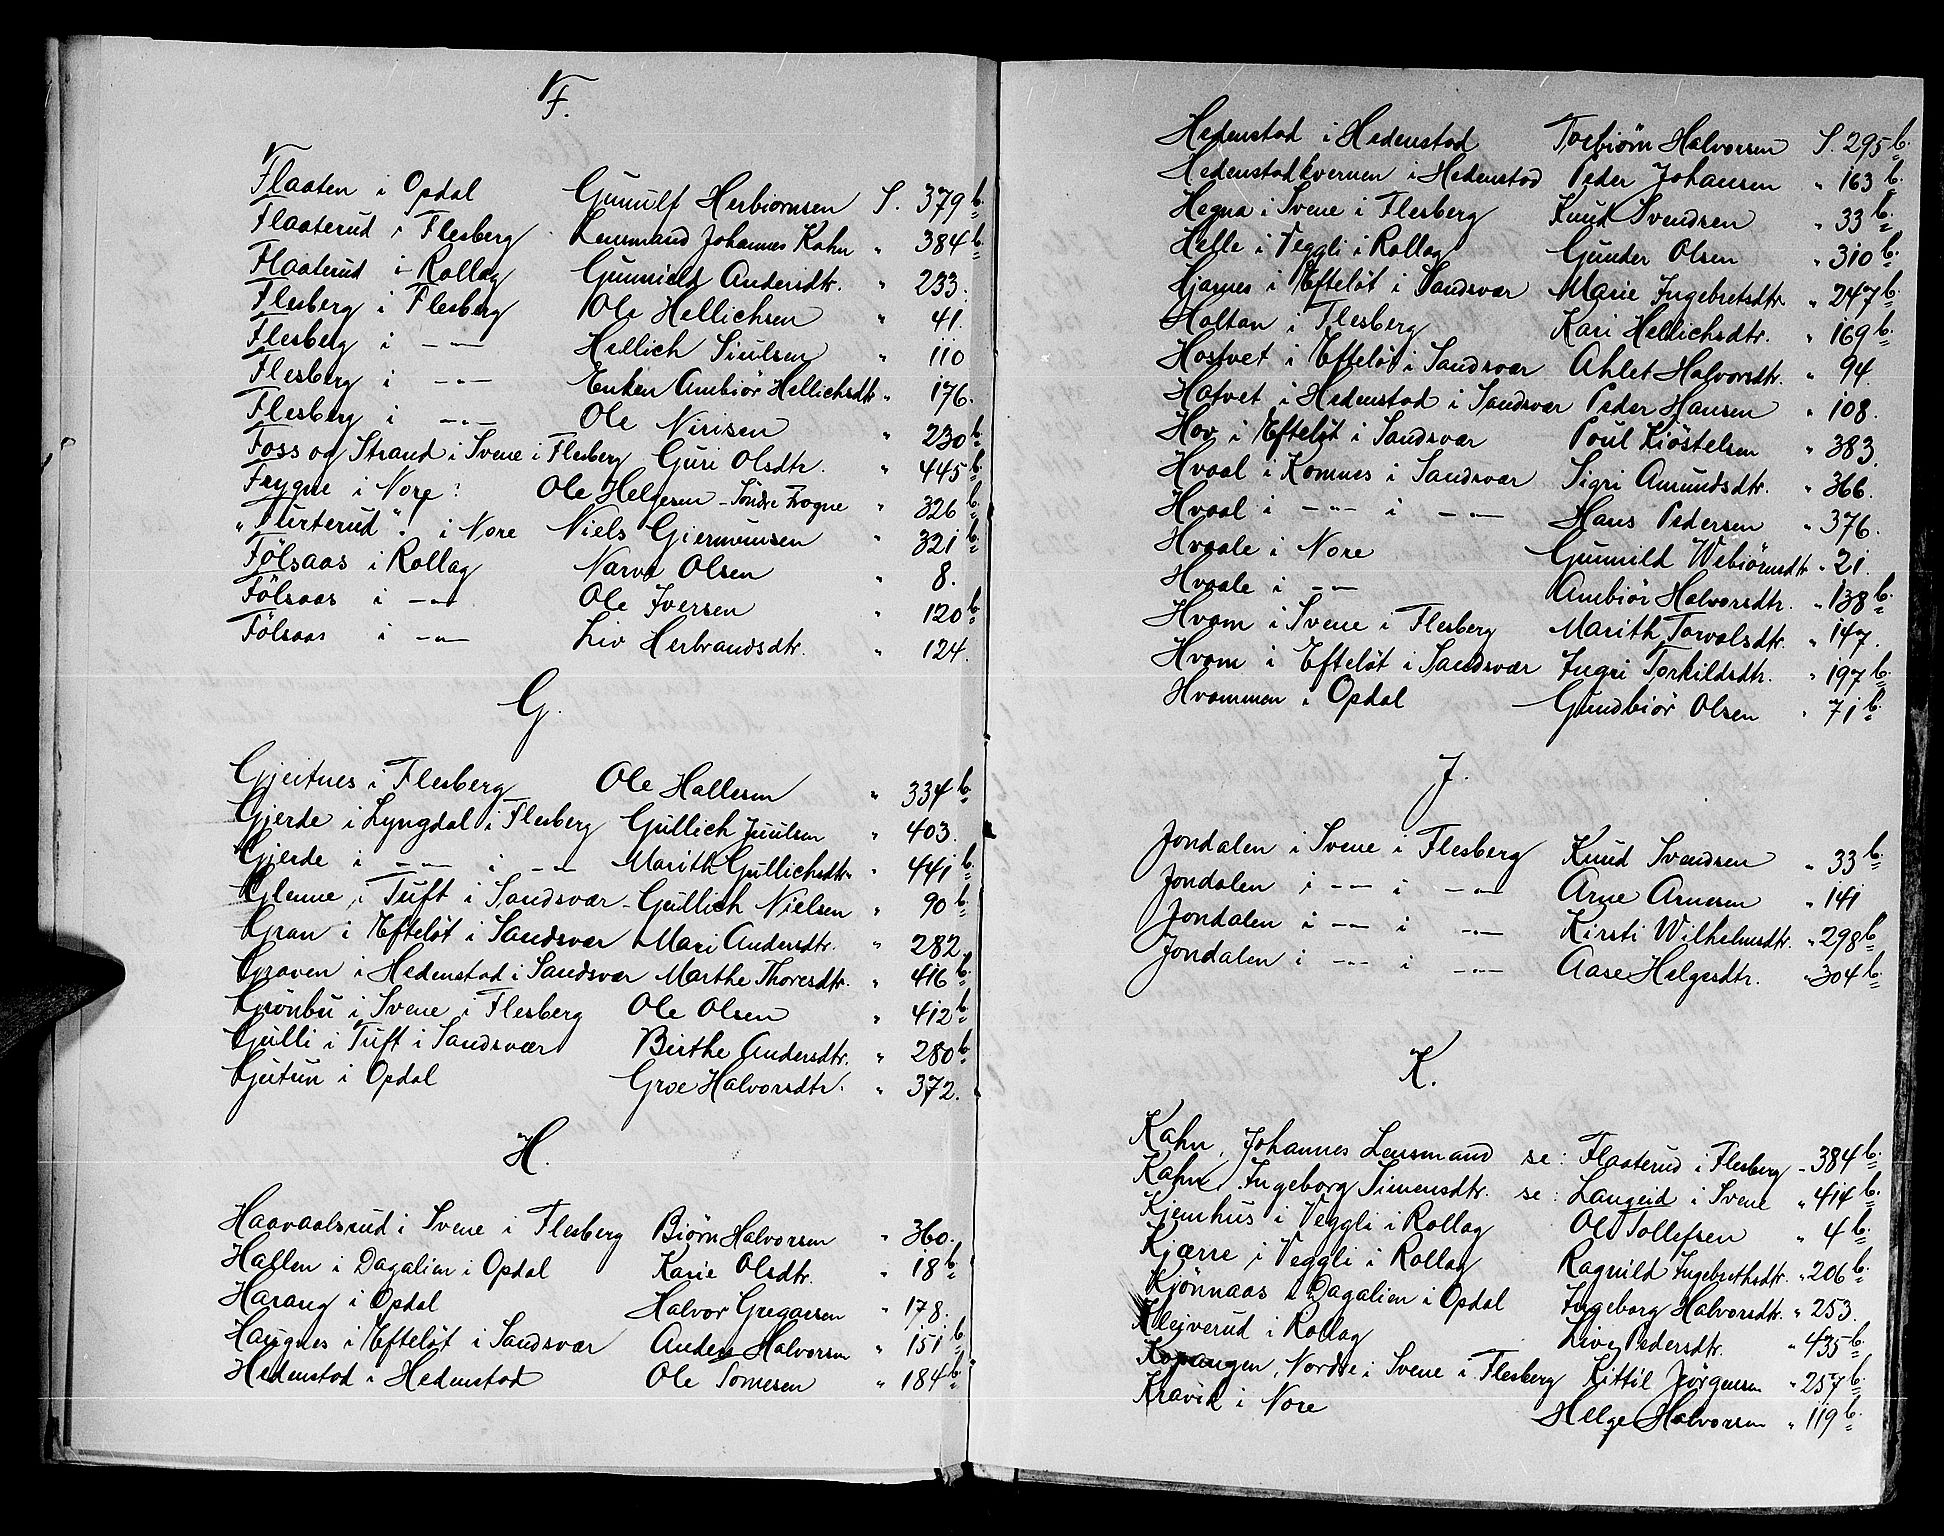 F.
Flaaten i Opdal Gunulf Herbiørnsen S. 379 b.
Flaaterud i Flesberg Lensmand Johannes Kahn " 384 b.
Flaaterud i Rollag Gunnild Andersdtr. " 233.
Flesberg i Flesberg Ole Hellichsen " 41.
Flesberg i -"- Hellich Siulsen " 110
Flesberg i -"- Enken Ambiør Hellichsdtr " 176.
Flesberg i -"- Ole Nirisen " 230 b.
Foss og Strand i Svene i Flesberg Guri Olsdtr. " 445 b.
Frygne i Nore? Ole Helgesen - Søndre Frogne " 326 b.
"Furterud". i Nore Niels Giermunsen " 321 b.
Fölsaas i Rollag Narve Olsen " 8.
Fölsaas i -"- Ole Iversen " 120 b.
Fölsaas i -"- Liv Herbrandsdtr. " 124.
G.
Gjeitnes i Flesberg Ole Hallesen " 334 b.
Gjerde i Lyngdal i Flesberg Gullich Juulsen " 403.
Gjerde i -"- i -"- Marith Gullichsdtr " 441 b.
Glenne i Tuft i Sandsvær - Gullich Nielsen " 90 b.
Gran i Efteløt i Sandsvær Mari Andersdtr. " 282.
Graven i Hedenstad i Sandsvær Marthe Thoresdtr. " 416 b.
Grønbu i Svene i Flesberg Ole Olsen " 412 b.
Gulli i Tuft i Sandsvær Birthe Andersdtr. " 280 b.
Gutun i Opdal Groe Halvorsdtr. " 372.
H.
Haavaalsrud i Svene i Flesberg Biørn Halvorsen " 360.
Hallen i Dagalien i Opdal Karie Olsdtr. " 18 b.
Harang i Opdal Halvor Gregarsen " 178.
Haugnes i Efteløt i Sandsvær Anders Halvorsen " 151 b.
Hedenstad i Hedenstad Ole Tomesen " 184 b.
Hedenstad i Hedenstad Torbiörn Halvorsen S. 295 b.
Hedenstadkvernen i Hedenstad Peder Johansen " 163 b.
Hegna i Svene i Flesberg Knud Svendsen " 33 b.
Helle i Veggli i Rollag Gunder Olsen " 310 b.
Hjarnes i Efteløt i Sandsvær Marie Ingebretsdtr. " 247 b.
Holtan i Flesberg Kari Hellichsdtr. " 169 b.
Hostvet i Efteløt i Sandsvær Ahlet Halvorsdtr. " 94.
Hotvet i Hedenstad i Sandsvær Peder Hansen " 108.
Hov i Efteløt i Sandsvær Poul Kiöstelsen " 383.
Hvaal i Komnes i Sandsvær Sigri Amundsdtr. " 366.
Hvaal i -"- i -"- Hans Pedersen " 376.
Hvaale i Nore Gunnild Webiörnsdtr " 21.
Hvaale i -"- Ambiör Halvorsdtr. " 138 b.
Hvam i Svene i Flesberg Marith Torvalsdtr. " 147.
Hvam i Efteløt i Sandsvær Ingri Torkildsdtr. " 197 b.
Hvammen i Opdal Gundbiör Olsen " 71 b.
J.
Jondalen i Svene i Flesberg Knud Svendsen " 33 b.
Jondalen i -"- i -"- Arne Arnesen " 141
Jondalen i -"- i -"- Kirsti Wilhelmsdtr. " 298 b.
Jondalen i -"- i -"- Aase Helgesdtr. " 304 b.
K.
Kahn, Johannes Lensmand se: Flaaterud i Flesberg - 384 b.
Kahn, Ingeborg Simensdtr. se: Langeid i Svene " 414 b.
Kjemhus i Veggli i Rollag Ole Tollefsen " 4 b.
Kjærre i Veggli i Rollag Ragnild Ingebrethsdtr. " 206 b.
Kjönnaas i Dagalien i Opdal Ingeborg Halvorsdtr. " 253.
Kleiverud i Rollag Live Pedersdtr. " 435 b.
Kopangen, Nordre i Svene i Flesberg Kittil Jørgensen " 257 b.
Kravik i Nore Helge Halvorsen " 119 b.